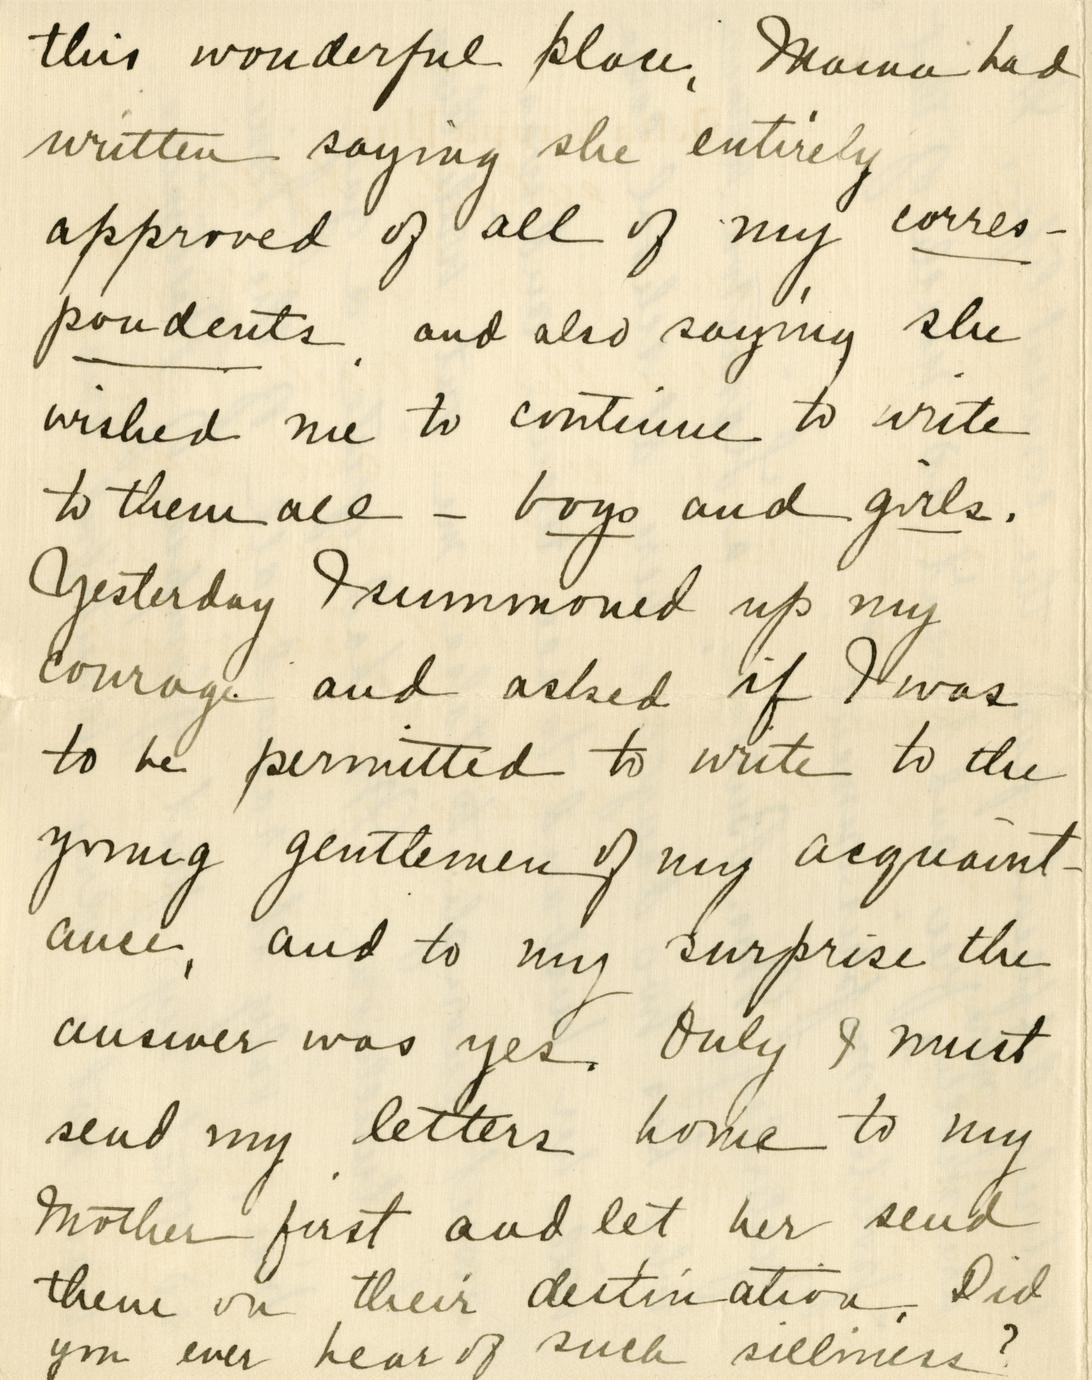 this wonderful place, Mama had
written saying she entirely
approved of all of my corres-
pondents, and also saying she
wished me to continue to write
to them all - boys and girls.
Yesterday I summoned up my
courage and asked if I was
to be permitted to write to the
young gentlemen of my acquaint-
ance, and to my surprise the
answer was yes. Only I must
send my letters home to my
Mother first and let her send
them on their destination. Did
you ever hear of such silliness?